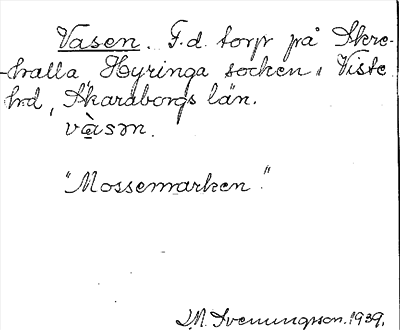 Vasen. F.d. torp på Skre-
-halla, Hyringa socken, Viste
hrd, Skaraborgs län.
vàsən.
"Mossemarken."
J.M. Svenungsson. 1939.